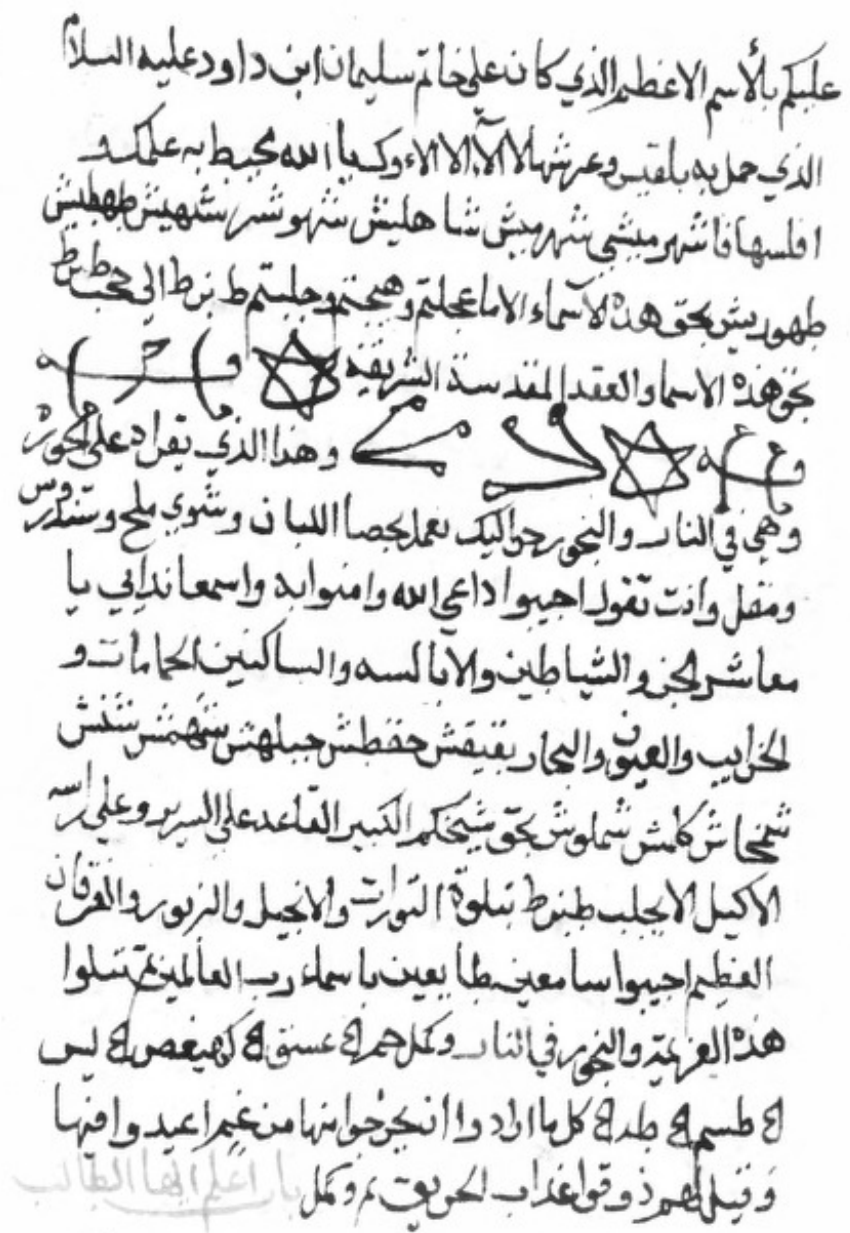 عليكم بالأسم الاعظم الذي كان على خاتم سليمان ابن داود عليه السلام
الذي حمل به بلقيس وعرشها الا الآلآ الا الاء وكـ يا الله محيط به علمك و
افلسها فا شهر ميشي شهر ميش شا هليش شهو شر شهيش طهطيش
طهوريش بحق هذه الاسماء الاما عجلتم وهيجتم وجلبتم ط نرط الي محبط نرط
بحق هذه الاسما والعقد المقدسة الشريفة
وهذا الذي يقراد على البخور
وهي في النار والبخور جوا اليك نعمد بحصا اللبان وشوي ملح وسندروس
ومقل وانت تقول اجيبوا داعي الله وامنوا به واسمعا ندابي يا
معاشر الجن والشياطين والابالسه والساكنين الحمامات و
الخرايب والعيون والبحار بقيقش حفطش جبلهش شهمش شنش
شمخاش كلمش شملوش بحق شيخكم الكبير القاعد على السرير وعلى راسه
الاكيل الا يجلب طنرط بتلوة التورات والانجيل والزبور والفرقان
العظيم اجيبوا سامعين طايعين باسماء رب العالمين ثم تتلوا
هذه العزيمة والبخور في النار وكمل حم ھ عسق ھ كهيعص ھ يس
ھ طسم ھ طه ھ كل ما ارادوا ان يخرجوا منها من غم اعيدوا فيها
وقيل لهم ذوقوا عذاب الحريق تم وكمل باب اعلم ايها الطالب